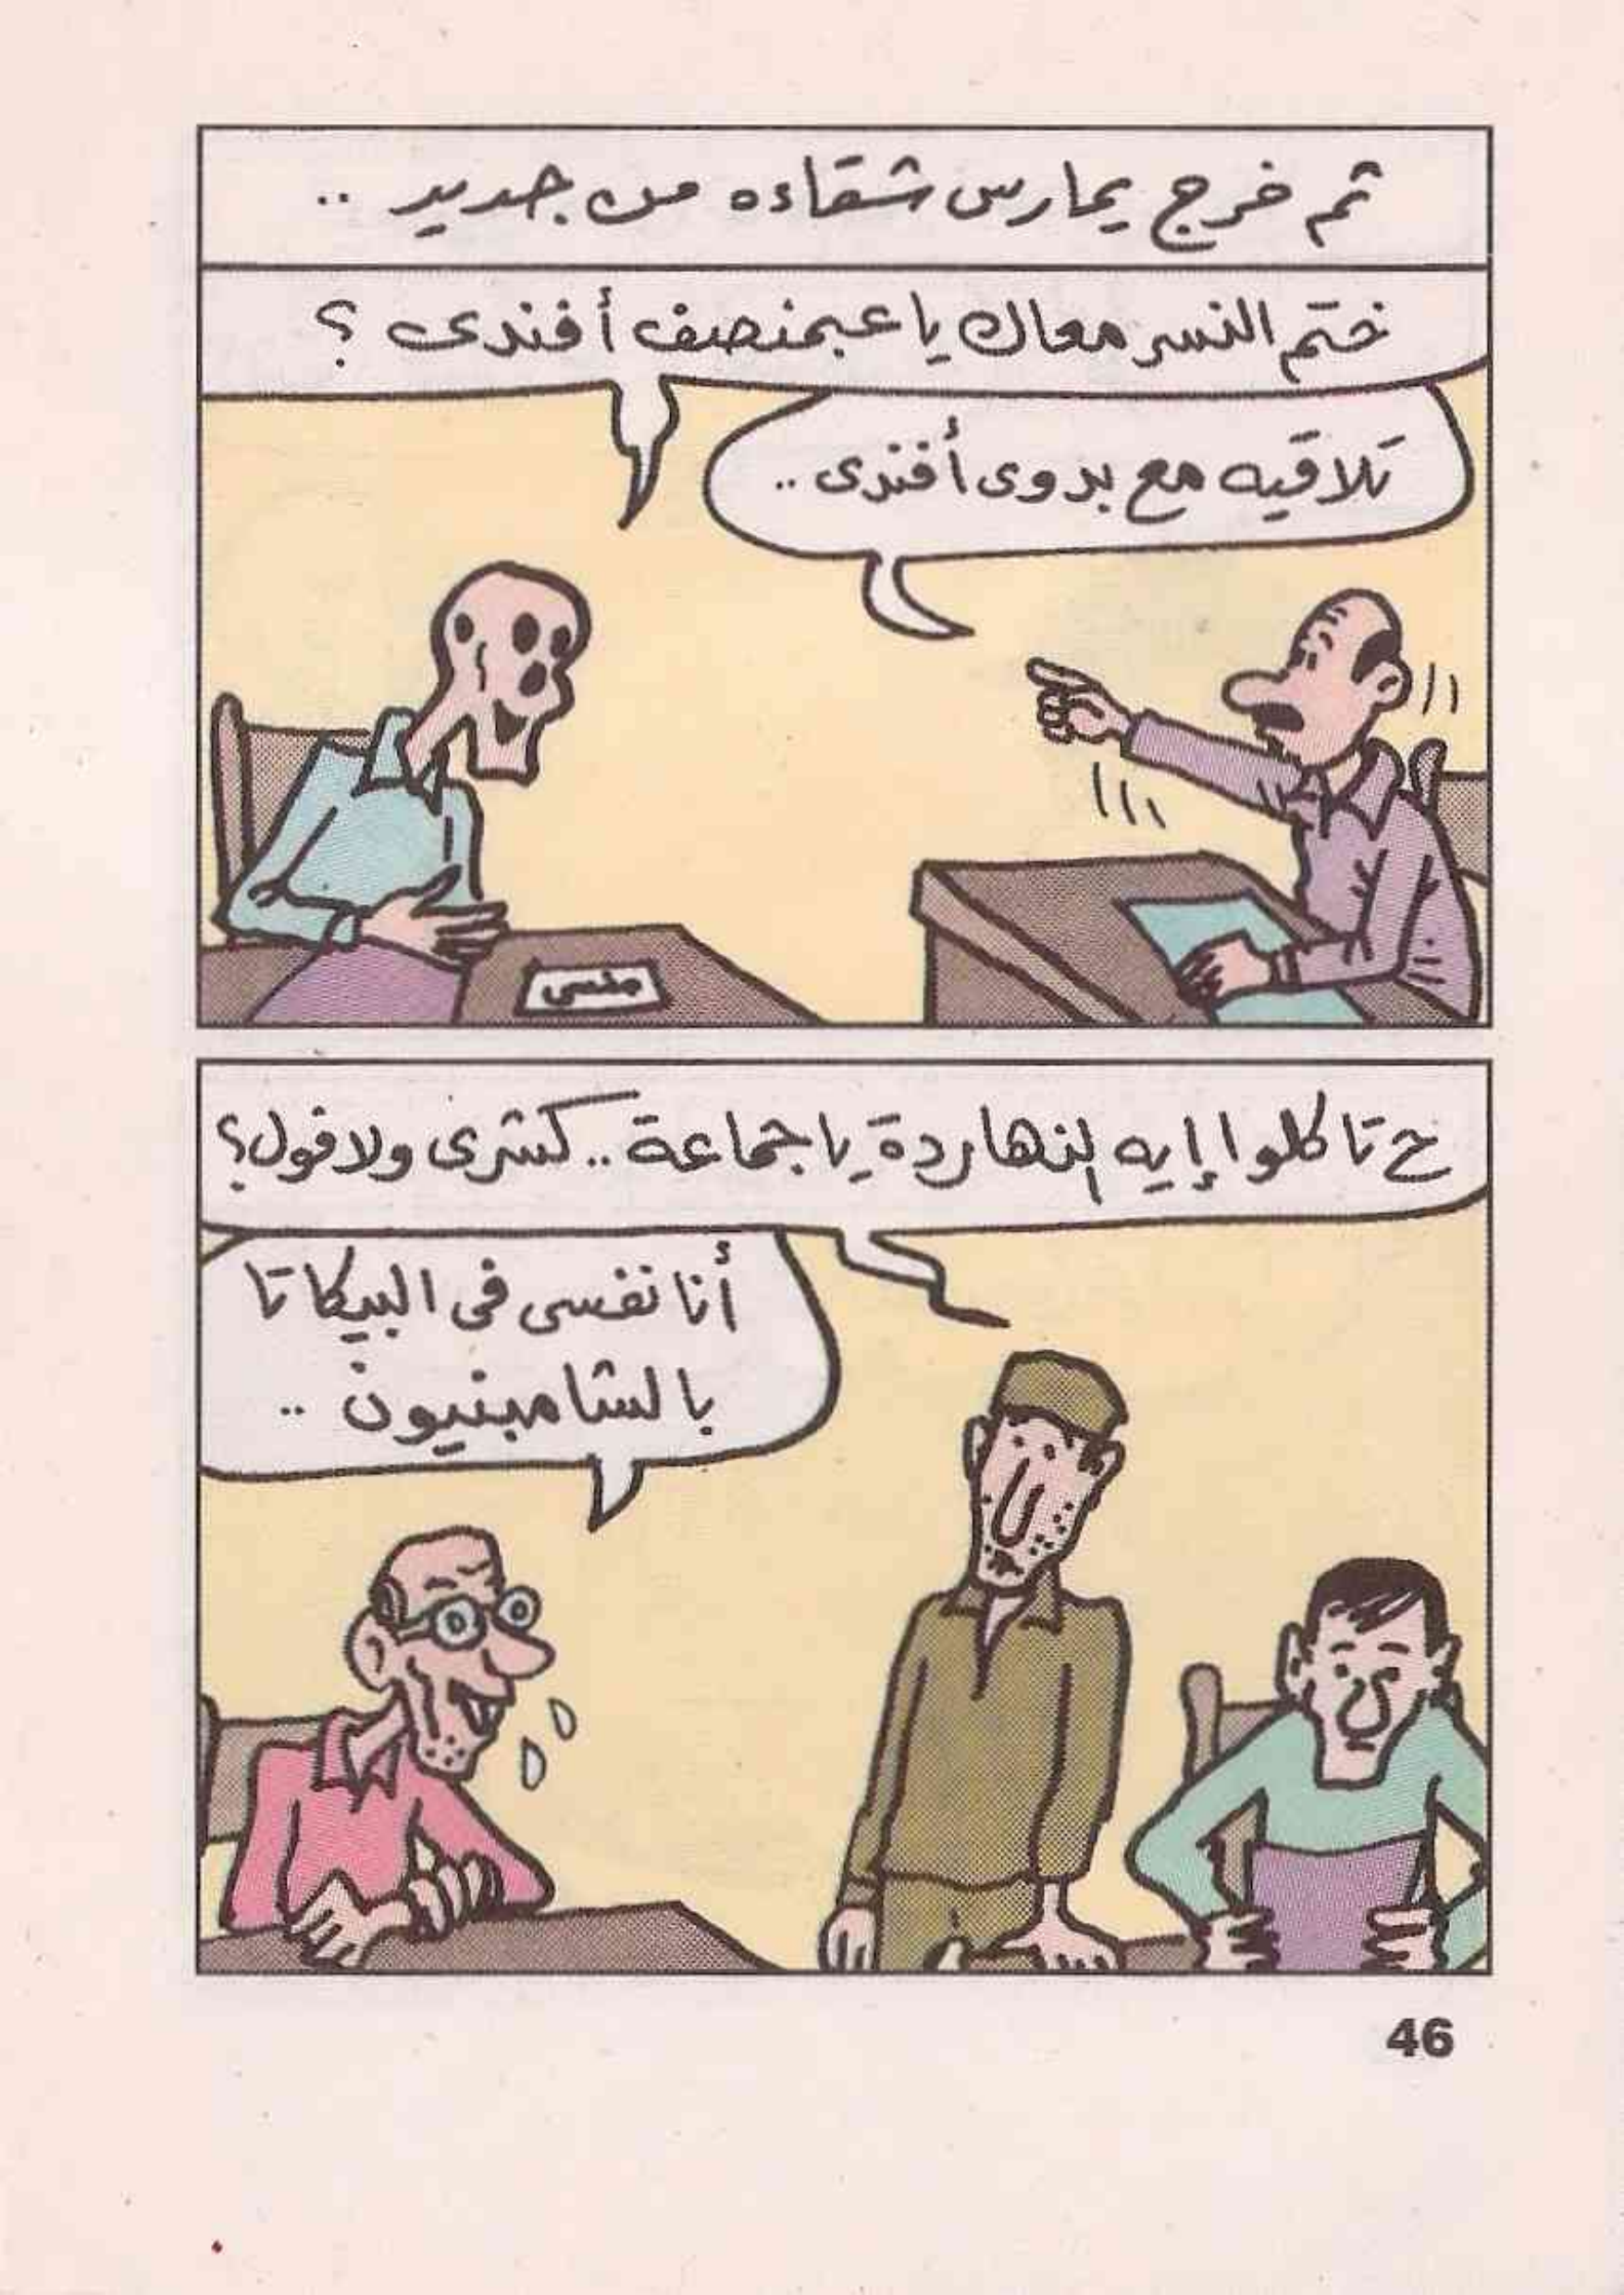 ثم خرج يمارس شقاءه من جديد ..
ختم النسر معاك يا عبمنصف أفندى ؟
تلاقيه مع بدوى أفندى ..
منسى
ح تاكلوا إيه النهاردة يا جماعة .. كشرى ولا فول ؟
أنا نفسى فى البيكاتا
بالشامبنيون ..
46